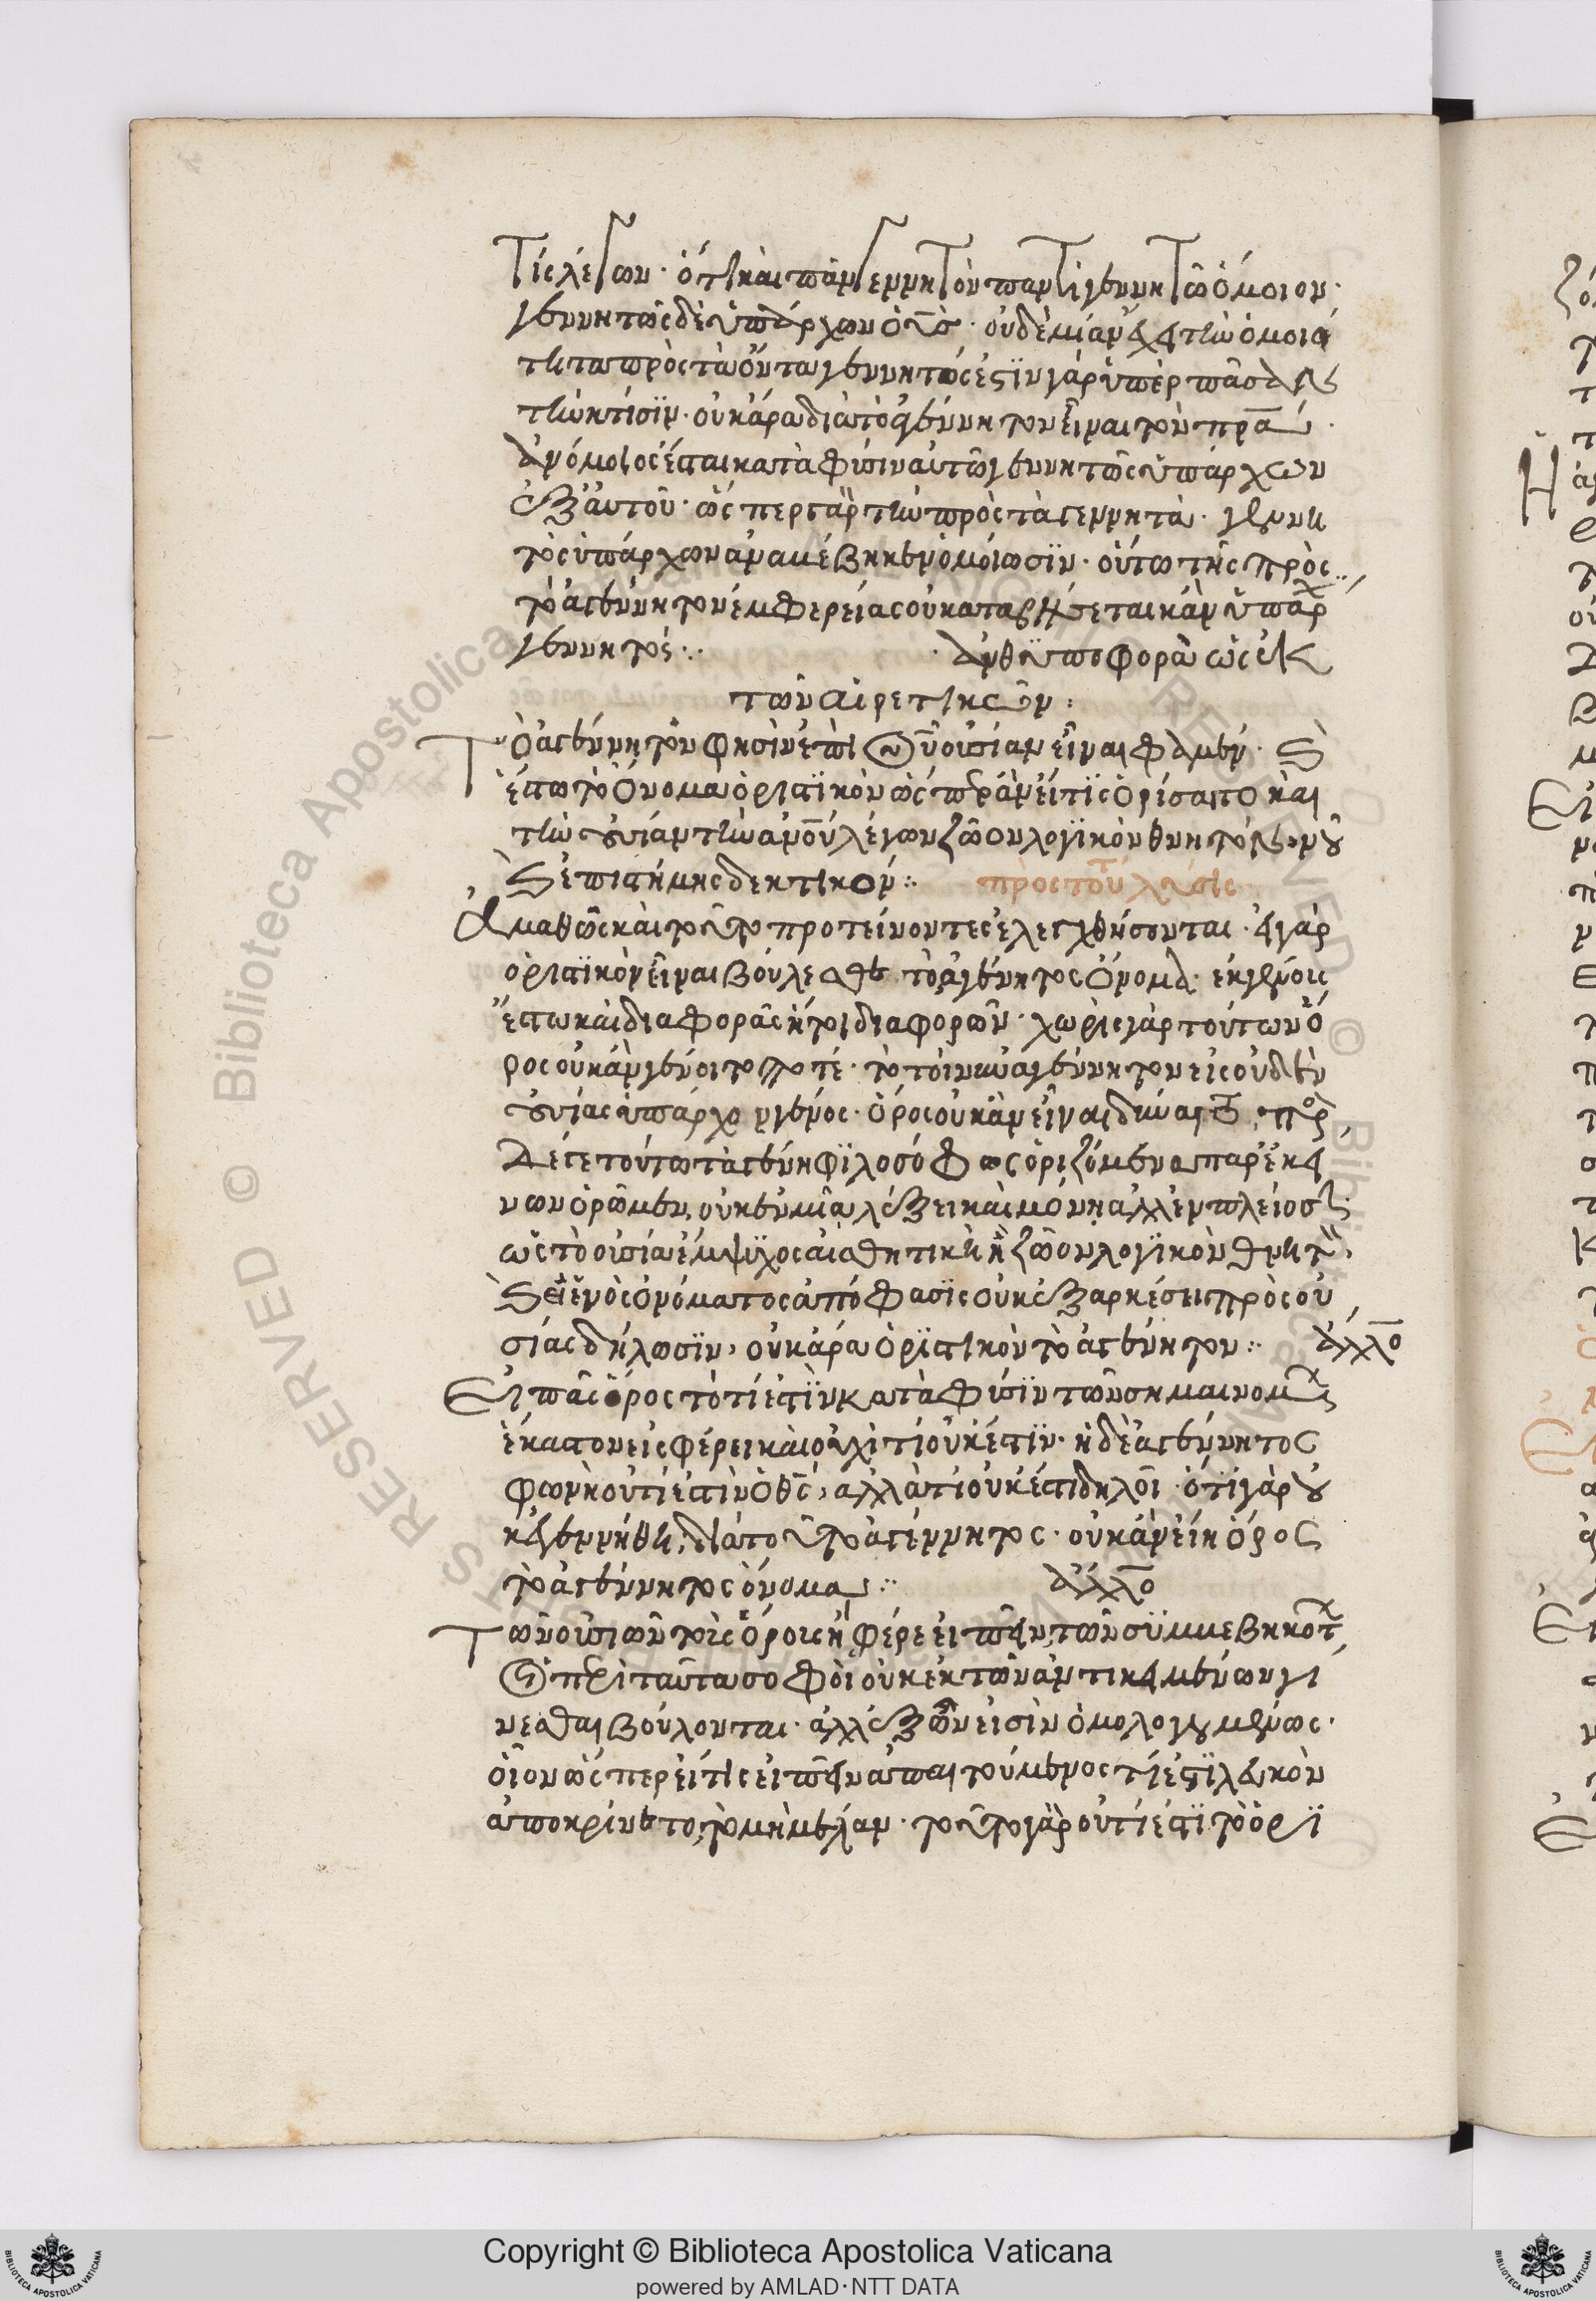 Τίς λέγων· ὅτι καὶ πᾶν γεννητὸν παντὶ γεννητῶ ὅμοιον·
γεννητὸς δὲ ὑπάρχων ὁ υἱὸς· οὐδεμίαν ἔχει τὴν ὁμοιό
τητα πρὸς τὰ ὄντα γεννητός ἐστϊν γὰρ ὑπὲρ πᾶσαν
τὴν κτίσϊν· οὐκ ἄρα διὰ τὸ ἀγέννητον εἶναι τὸν πρα·
ἀνόμοιος ἔσται κατὰ φύσιν αὐτῶ γεννητὸς ὑπάρχων
ἐξ αὐτοῦ· ὥς περ γὰρ τὴν πρὸς τὰ γεννητὰ· γενη
τὸς ὑπάρχων ἀναμέβηκεν ὁμοίωσϊν· οὕτω τῆς πρὸς
τὸ ἀγέννητον ἐμφερείας οὐ καταργήσεται κἂν ὑπάρχ
γεννητός· ἀνθυποφορὰ ὡς ἐκ
τῶν αἱρετικῶν:
Τὸ ἀγέννητον φησὶν ἐπὶ θυ οὐσίαν εἶναι φαμὲν· καὶ
ἔστω τὸ ὄνομα ὁριστϊκὸν ὥσπερ ἂν εἴ τις ὁρίσαιτο καὶ
τὴν οὐσίαν τὴν ανου λέγων ζῶον λογϊκὸν θνητόν νου
καὶ ἐπιστήμης δεκτικόν:· πρὸς τοῦτο λύσις
Ἀμαθῶς καὶ τοῦτο προτείνοντες ἐλεγχθήσονται· εἰ γὰρ
ὁριστϊκὸν εἶναι βούλεσθε τὸ ἀγένητος ὄνομα· ἐκ γένους
ἔστω καὶ διαφορᾶς ἤτοι διαφορῶν· χωρὶς γὰρ τούτων ὅ
ρος οὐκ ἂν γένοιτο ποτέ· τὸ τοίνυν ἀγέννητον εἰς οὐδὲν
οὐσίας ὑπάρχο γένος· ὅρος οὐκ ἂν εἶναι δύναιτο,
φϊλοσόφως ὁριζόμενα παρ' ἐκεί
νων ὁρῶμεν, οὐκ ἐν μιᾶ λέξει καὶ μόνη ἀλλ' ἐν πλείοσι·
ὡς τὸ οὐσία ἔμψϋχος αἰσθητικὴ ἢ ζῶον λογϊκὸν θνητὸν,
καὶ εἰ ἑνὸς ὀνόματος ἀπόφασϊς οὐκ ἐξαρκέσει πρὸς οὐ
σίας δήλωσϊν, οὐκ ἄρα ὁρϊστικὸν τὸ ἀγένητον:· ἄλλο
Εἰ πᾶς ὅρος τὸ τί ἐστϊν κατὰ φύσϊν τῶν σημαινομένων
ἕκαστον εἰσφέρει καὶ οὐχὶ τί οὐκ ἔστϊν· ἡ δὲ ἀγέννητος
φωνὴ οὐ τί ἐστὶν ὁ θς, ἀλλὰ τί οὐκ ἔστι δηλοῖ· ὅτι γὰρ οὐ
κ ἐγεννήθη, διὰ τοῦτο ἀγέννητος· οὐκ ἂν εἴη ὅρος
τὸ ἀγέννητος ὄνομα:· ἄλλο
Τῶν οὐσιῶν τοὺς ὅρους ἢ φέρε εἰπεῖν τῶν συμμεβηκότων
οἱ περὶ ταῦτα σοφοὶ οὐκ ἐκ τῶν ἀντικειμένων γί
νεσθαι βούλονται· ἀλλ' ἐξ ὧν εἰσὶν ὁμολογουμένως·
οἷον ὥσπερ εἴ τις εἰπεῖν ἀπαιτούμενος τί ἐστϊ λευκὸν
ἀποκρίνετο, τὸ μὴ μέλαν· τοῦτο γὰρ οὐ τί ἐστϊ τὸ ὁρϊ
Copyright © Biblioteca Apostolica Vaticana
powered by AMLAD·NTT DATA